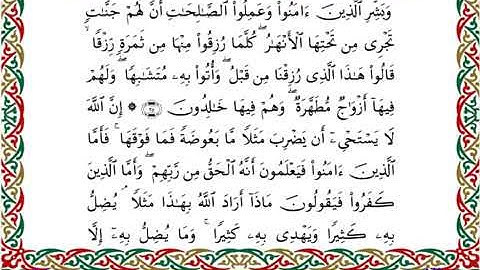 وَبَشِّرِ الَّذِينَ ءَامَنُوا۟ وَعَمِلُوا۟ الصَّـٰلِحَـٰتِ أَنَّ لَهُمْ جَنَّـٰتٍ
تَجْرِى مِن تَحْتِهَا الْأَنْهَـٰرُ ۖ كُلَّمَا رُزِقُوا۟ مِنْهَا مِن ثَمَرَةٍ رِّزْقًا ۙ
قَالُوا۟ هَـٰذَا الَّذِى رُزِقْنَا مِن قَبْلُ ۖ وَأُتُوا۟ بِهِۦ مُتَشَـٰبِهًا ۖ وَلَهُمْ
فِيهَآ أَزْوَٰجٌ مُّطَهَّرَةٌ ۖ وَهُمْ فِيهَا خَـٰلِدُونَ ﴿٢٥﴾ ۞ إِنَّ اللَّهَ
لَا يَسْتَحْىِۦٓ أَن يَضْرِبَ مَثَلًا مَّا بَعُوضَةً فَمَا فَوْقَهَا ۚ فَأَمَّا
الَّذِينَ ءَامَنُوا۟ فَيَعْلَمُونَ أَنَّهُ الْحَقُّ مِن رَّبِّهِمْ ۖ وَأَمَّا الَّذِينَ
كَفَرُوا۟ فَيَقُولُونَ مَاذَآ أَرَادَ اللَّهُ بِهَـٰذَا مَثَلًا ۘ يُضِلُّ
بِهِۦ كَثِيرًا وَيَهْدِى بِهِۦ كَثِيرًا ۚ وَمَا يُضِلُّ بِهِۦٓ إِلَّا